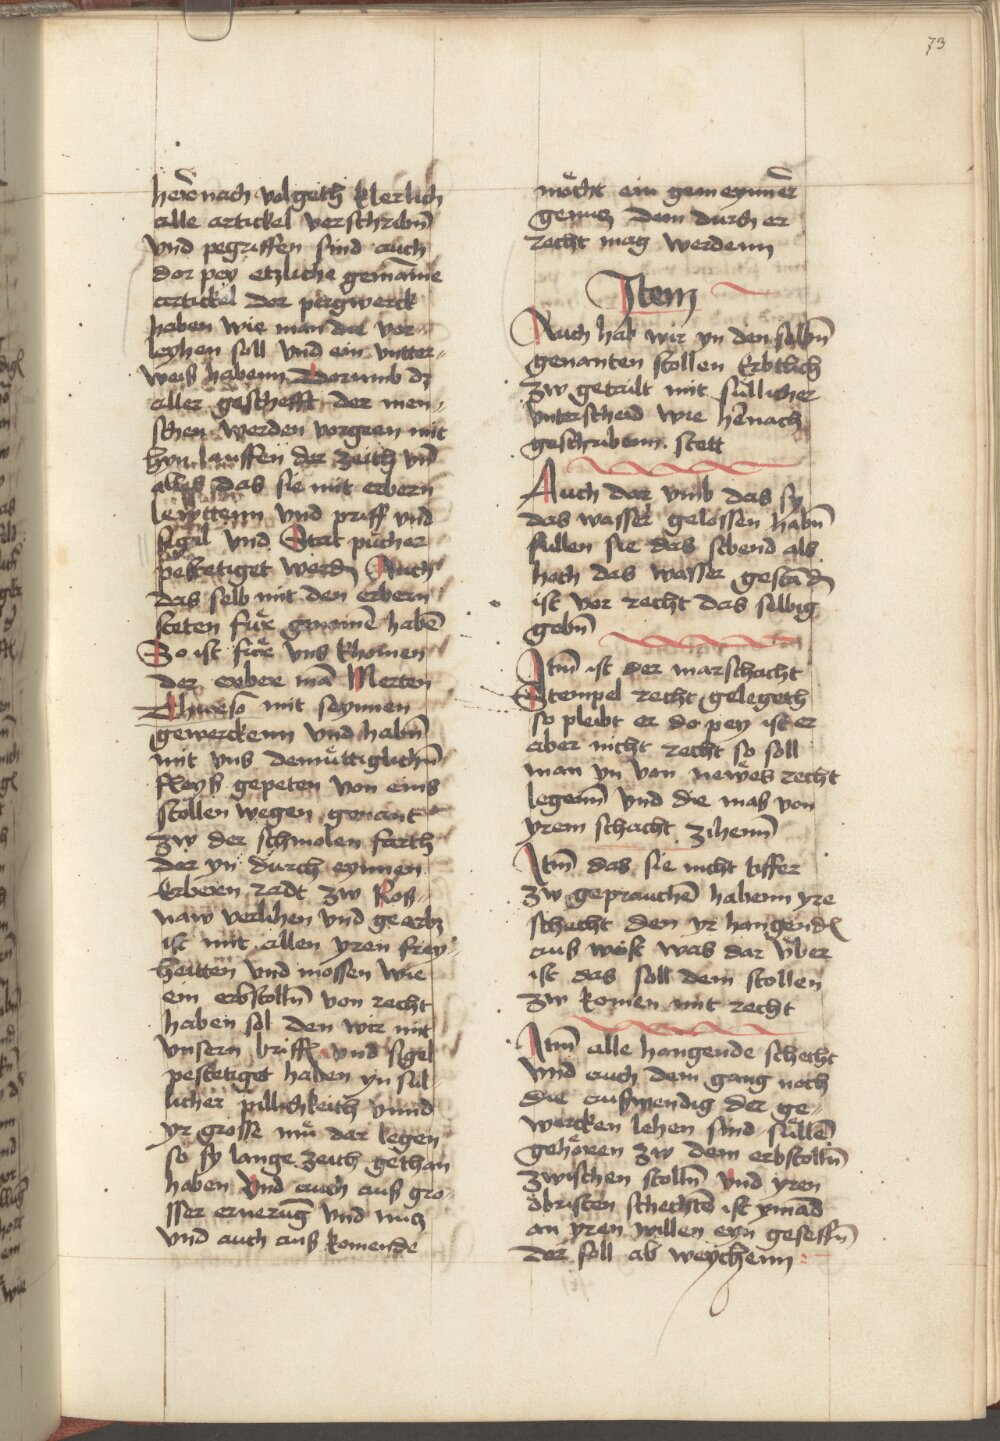 73
hernach volgeth klerlich
alle artickel verschribn̄
vnd pegriffen sind auch
dor pey etzliche gemaine
artickel dor pergwerck
haben wie man die vor-
leyhen soll vnd ein vntter-
weiß habenn Dorumb dz
aller geschefft der men-
schen werden vorgeen mit
hyn lauffen der zeith vn̄
alles das sie mit erbern
lewttenn vnd priff vnd
sigil vnd Stat pücher
pestetiget werdn̄ Auch
das selb mit den erbern
steten für genomē habē
So ist für vns khomen
der erbere mā Merten
mit seynnen
gewerckenn vnd habn̄
mit vns demüttiglichn̄
fleyß gepeten von eins
stollen wegen genant
zw der schmolen farth
der yn durch eynnen
Erberen radt zw
naw verlihen vnd geerbz
ist mit allen yren frey-
heitten vnd mossen wie
ein erbstolln̄ von recht
haben sol den wir mit
vnsern briff vnd sigel
pestetiget haben yn sul-
licher pillichkeith vnnd
yr grosse mü dar legen
so sy lange zeith gethan
haben vnd auch auß gro-
sser ernerūg vnd nucz
vnd auch auß komende
möcht ein gemeynner
genucz dem durch er
recht mag werdenn
Item
Auch hab wir yn den selbn̄
genanten stollen Erbtlich
zw geteilt mit sullicher
vnterscheid wie hernach
geschribenn stett
Auch dor vmb das sy
das wasser gelossen habn̄
sullen sie das sbend als
hoch das wasser gestādn̄
ist vor recht das selbig
gebn̄
Itm̄ ist der marschacht
Stempel recht gelegeth
so pleibt er do pey ist er
aber nicht recht so soll
man yn von newes recht
legenn̄ vnd die maß von
yrem schacht zihenn̄
Itm̄ das sie nicht tiffer
zw geprauchē habenn yre
schacht den yr hangends
auß weist was dar über
ist das soll dem stollen
zw komen mit recht
Itm̄ alle hangende schecht
vnd auch dem gang noch
die außwendig der ge-
wercken lehen sind süllē
gehören zw dem erbstolln̄
zwischen stolln̄ vnd yren
öbristen schechtē ist ymād
an yren willen eyn gesessn̄
der soll ab weychenn